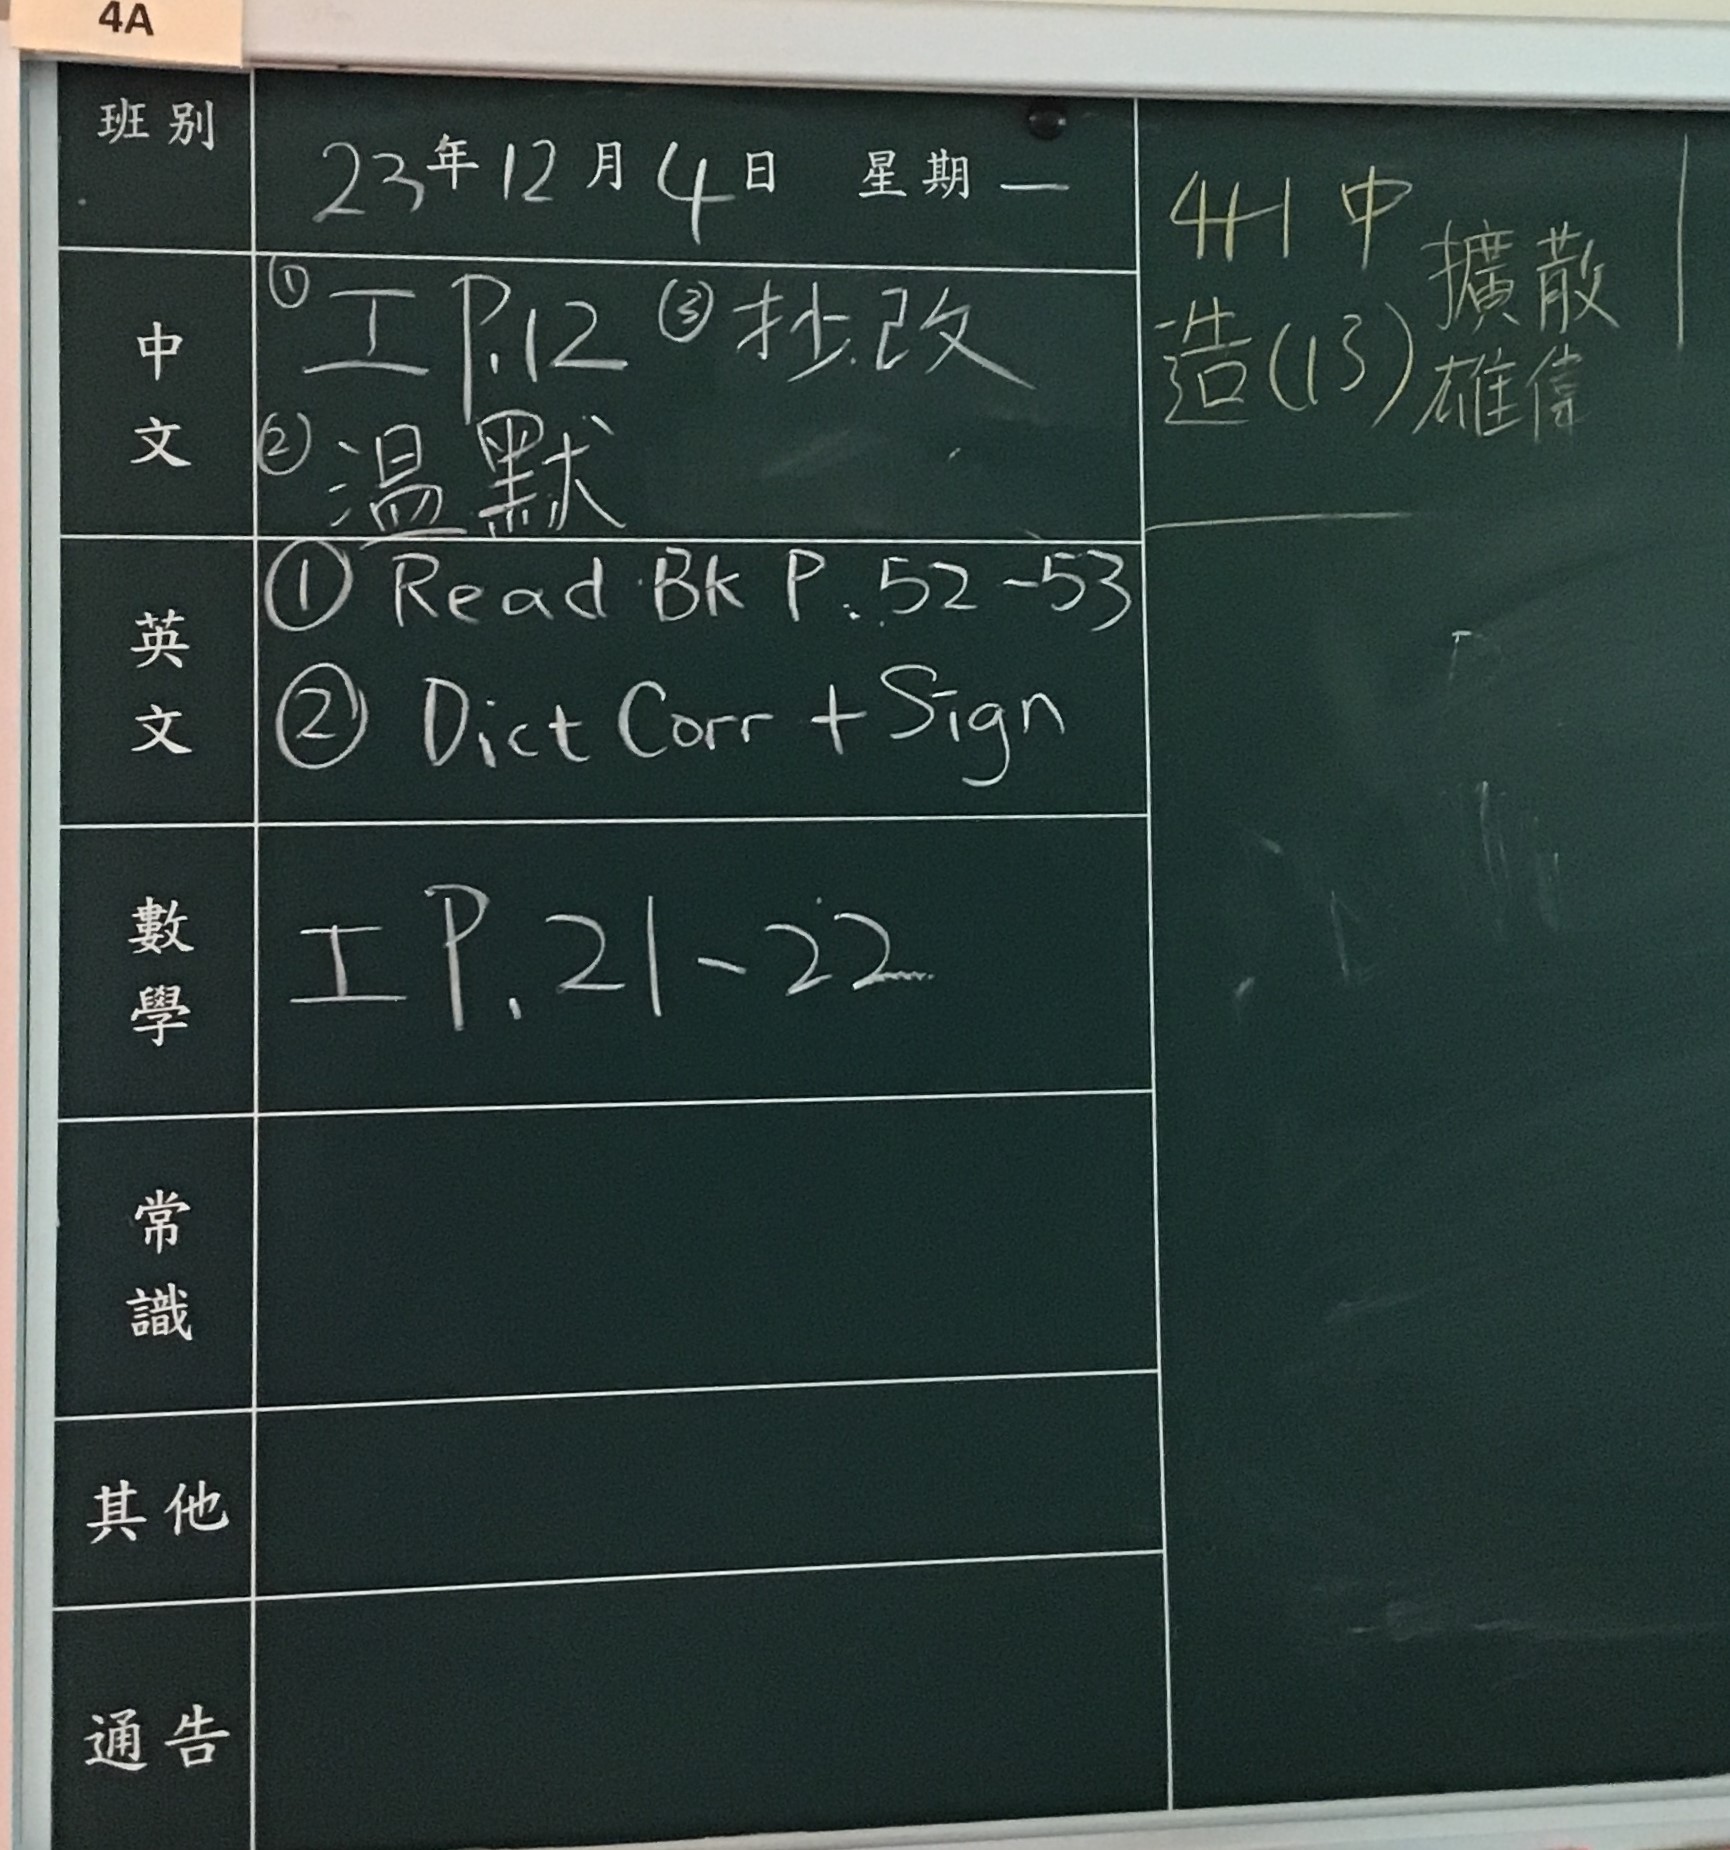 4A
班別
23年12月4日 星期一
中文
① 工 P.12 ③ 抄.改
② 溫默
英文
① Read Bk P. 52-53
② Dict Corr + Sign
數學
工 P. 21-22
常識
其他
通告
中
擴散
造(13)
雄偉